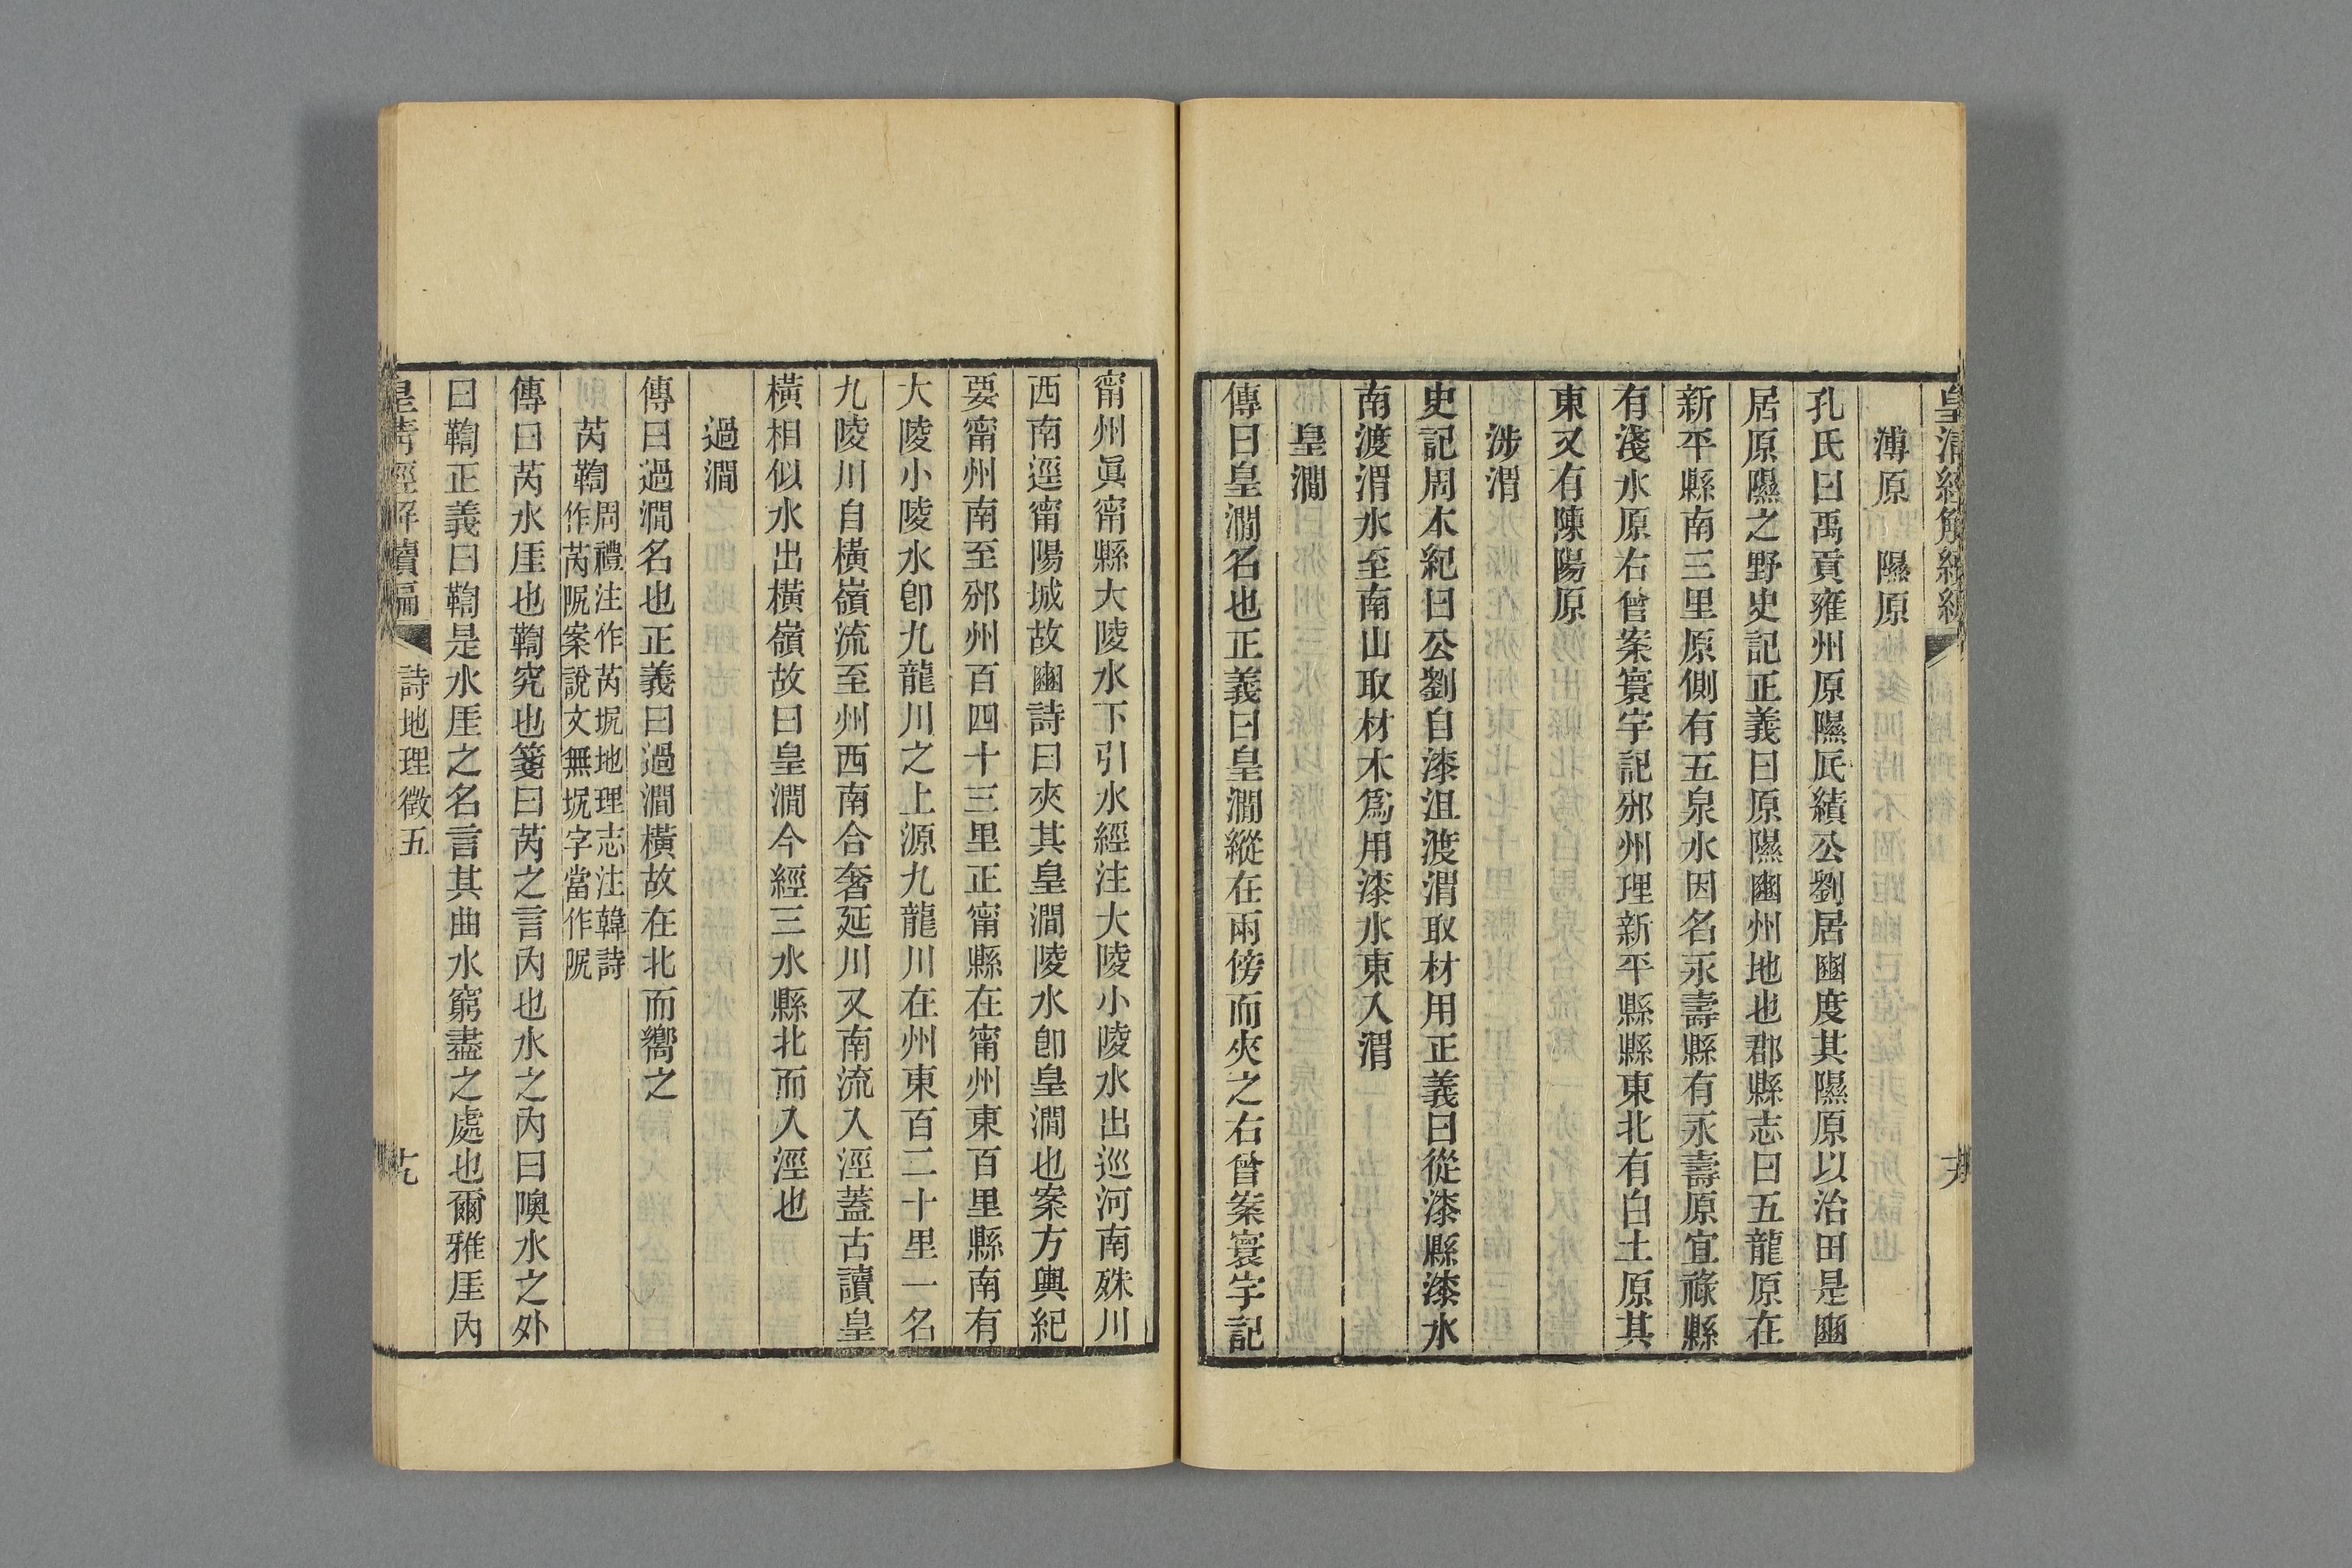 皇清經解續編
溥原　隰原
孔氏曰禹貢雍州原隰厎績公劉居豳度其隰原以治田是豳
居原隰之野史記正義曰原隰豳州地也郡縣志曰五龍原在
新平縣南三里原側有五泉水因名永壽縣有永壽原宜祿縣
有淺水原右曾案寰宇記邠州理新平縣縣東北有白土原其
東又有陳陽原
涉渭
史記周本紀曰公劉自漆沮渡渭取材用正義曰從漆縣漆水
南渡渭水至南山取材木爲用漆水東入渭
皇澗
傳曰皇澗名也正義曰皇澗縱在兩傍而夾之右曾案寰宇記
甯州眞甯縣大陵水下引水經注大陵小陵水出巡河南殊川
西南逕甯陽城故豳詩曰夾其皇澗陵水卽皇澗也案方輿紀
要甯州南至邠州百四十三里正甯縣在甯州東百里縣南有
大陵小陵水卽九龍川之上源九龍川在州東百二十里一名
九陵川自橫嶺流至州西南合奢延川又南流入涇蓋古讀皇
橫相似水出橫嶺故曰皇澗今經三水縣北而入涇也
過澗
傳曰過澗名也正義曰過澗橫故在北而嚮之
芮鞫周禮注作芮坭地理志注韓詩
作芮阸案說文無坭字當作阸
傳曰芮水厓也鞫究也箋曰芮之言內也水之內曰隩水之外
曰鞫正義曰鞫是水厓之名言其曲水窮盡之處也爾雅厓內
皇清經解續編　詩地理徵五　十九